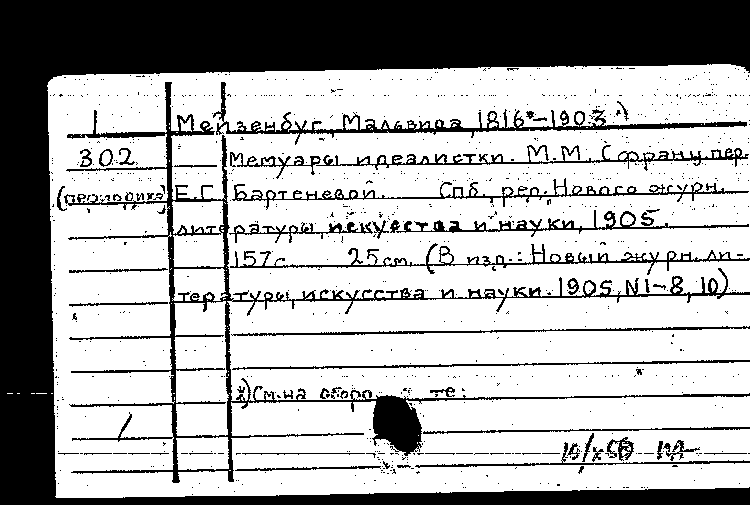 1 Мейзенбуг, Мальвида, 1816*–1903 *)
302 Мемуары идеалистки. М.М. С франц. пер.
(периодика) Е.Г. Бартеневой. Спб, ред. Нового журн.
литературы, искусства и науки, 1905.
157с. 25см. (В изд.: Новый журн. ли-
тературы, искусства и науки. 1905, N1–8, 10)
*) См. на оборо те: